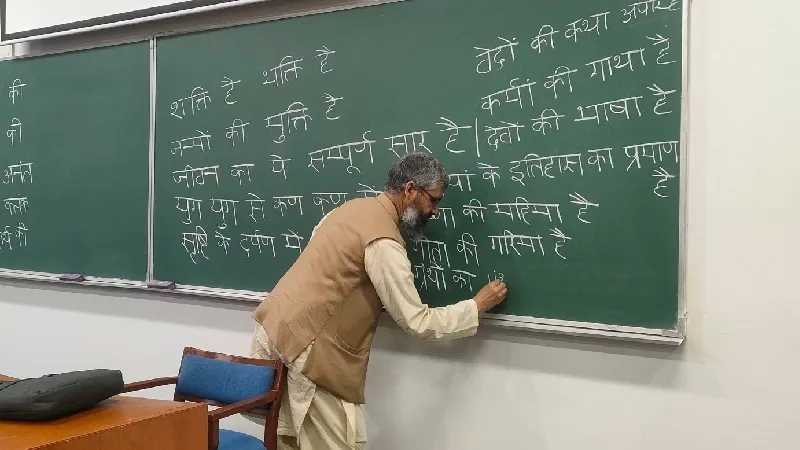 की
की
अनंत
शक्ति है भक्ति है
जन्मों की मुक्ति है
जीवन का ये सम्पूर्ण सार है
युग युग से कण कण
सृष्टि के दर्पण में
वेदों की कथा
कर्मों की गाथा है
देवों की भाषा है
के इतिहास का प्रमाण
है
की महिमा है
की गरिमा है
ग्रंथों का